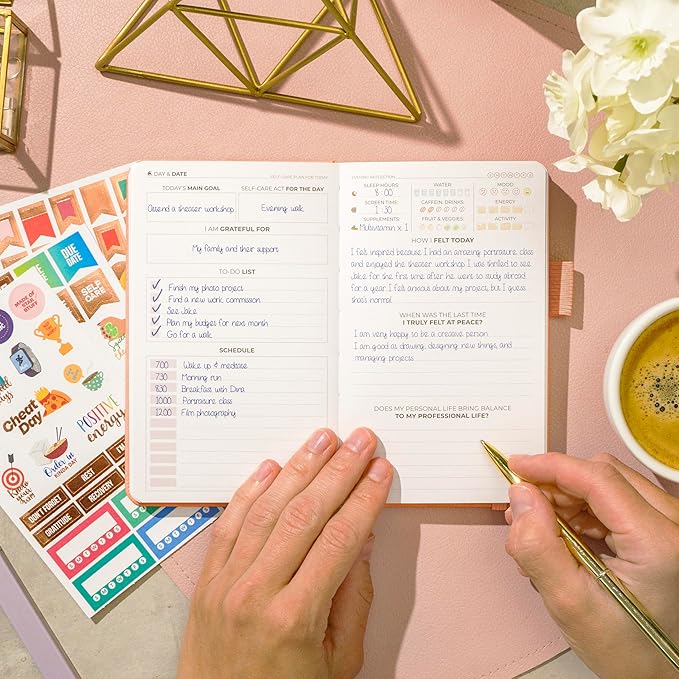 DAY & DATE
SELF-CARE PLAN FOR TODAY
TODAY'S MAIN GOAL
SELF-CARE ACT FOR THE DAY
Attend a theater workshop
Evening walk
I AM GRATEFUL FOR
My family and their support
TO-DO LIST
Finish my photo project
Find a new work commission
See Jake
Plan my budges for next month
Go for a walk
SCHEDULE
7:00 Wake up & meditate
7:30 Morning run
8:30 Breakfast with Dina
10:00 Portraiture class
12:00 Film photography
EVENING REFLECTION
SLEEP HOURS
WATER
MOOD
8:00
SCREEN TIME
CAFFEIN. DRINKS
ENERGY
1:30
SUPPLEMENTS
FRUIT & VEGGIES
ACTIVITY
Multivitamin x 1
HOW I FELT TODAY
I felt inspired because I had an amazing portraiture class
and enjoyed the theater workshop. I was thrilled to see
Jake for the first time after he went to study abroad
for a year. I felt anxious about my project, but I guess
that's normal.
WHEN WAS THE LAST TIME
I TRULY FELT AT PEACE?
I am very happy to be a creative person.
I am good as drawing, designing new things, and
managing projects.
DOES MY PERSONAL LIFE BRING BALANCE
TO MY PROFESSIONAL LIFE?
DUE
DATE
SELF
CARE
MADE OF
STAR
STUFF
Cheat
Day
POSITIVE
energy
Order in
KINDA DAY
DON'T FORGET
REST
GRATITUDE
RECOVERY
S M T W T F S
S M T W T F S
S M T W T F S